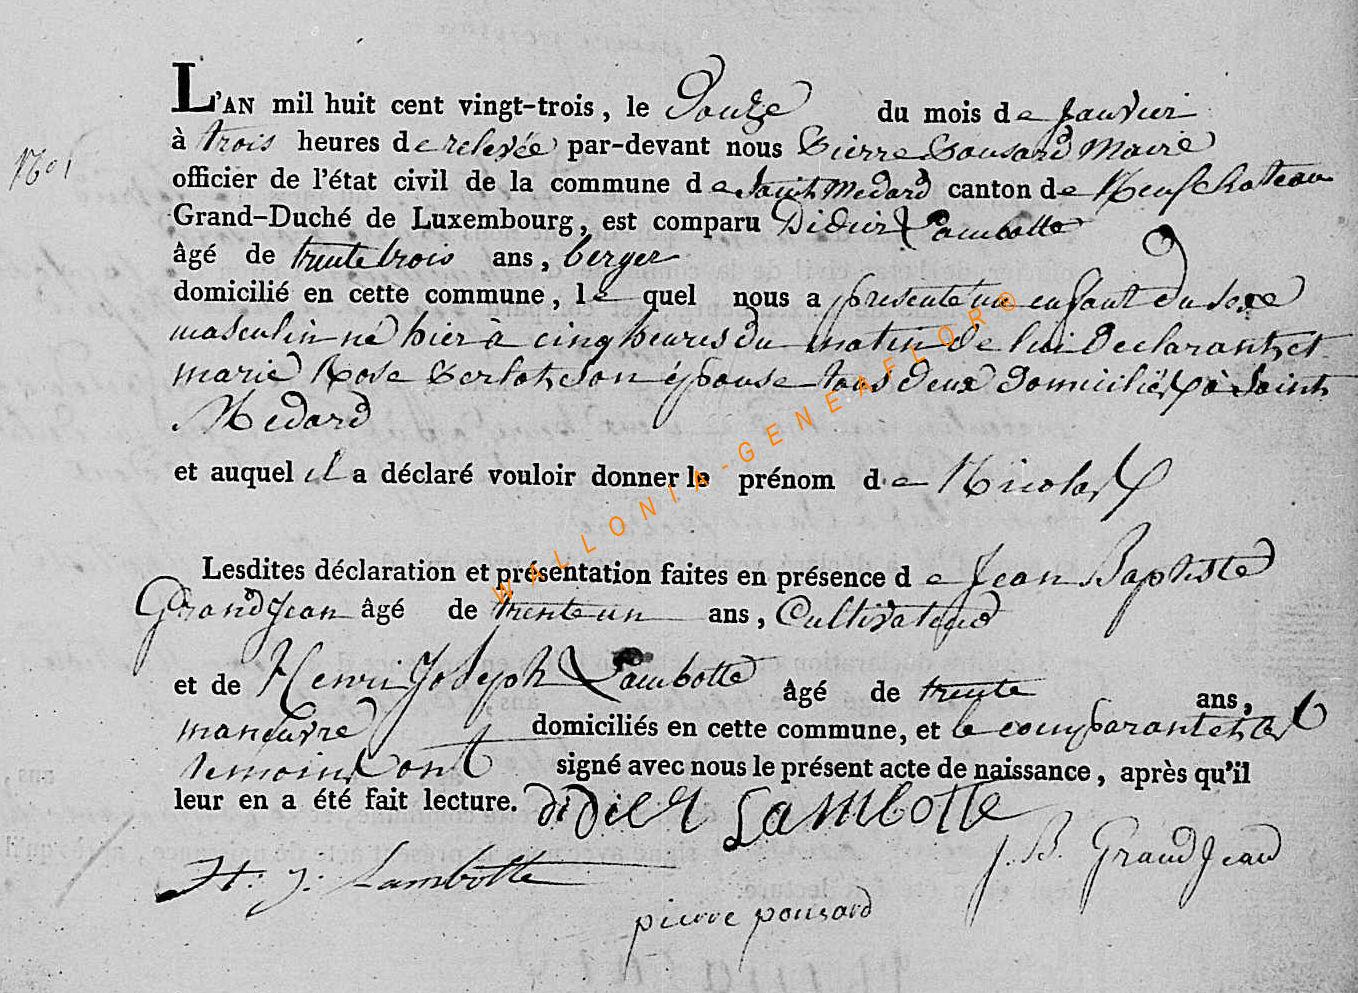 L'AN mil huit cent vingt-trois, le Douze du mois de Janvier
à trois heures de relevée par-devant nous Pierre Pousard Maire
officier de l'état civil de la commune de Saint Medard canton de Neufchateau
Grand-Duché de Luxembourg, est comparu Didier Lambotte
âgé de trente trois ans, berger
domicilié en cette commune, le quel nous a presenté un enfant du sexe
masculin né hier à cinq heures du matin de lui Declarant, et
marie Rose son épouse tous deux Domiciliés à Saint
Medard
et auquel il a déclaré vouloir donner le prénom de Nicolas
Lesdites déclaration et présentation faites en présence de Jean Baptiste
GrandJean âgé de trente un ans, Cultivateur
et de Henri Joseph Lambotte âgé de trente ans,
maneuvre domiciliés en cette commune, et le comparant et les
temoins ont signé avec nous le présent acte de naissance, après qu'il
leur en a été fait lecture. didier Lambotte
H. J. Lambotte J. B. GrandJean
pierre pousard
WALLONIA-GENEAFLORO